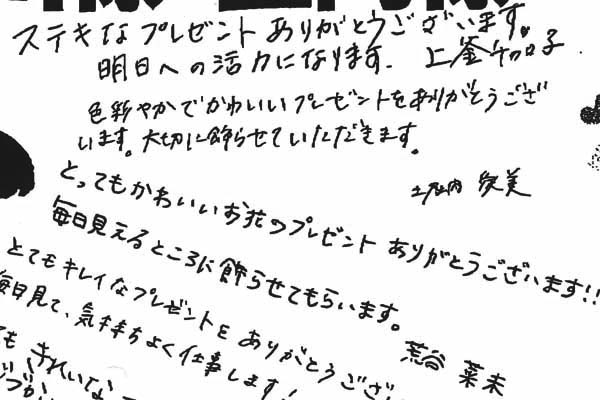 ステキなプレゼントありがとうございます。
明日への活力になります。 上釜 子
色彩やかでかわいいプレゼントをありがとうござ
います。大切に飾らせていただきます。
内 美
とってもかわいいお花のプレゼント ありがとうございます!!
毎日見えるところに飾らせてもらいます。
荒谷 菜未
とてもキレイなプレゼントを ありがとうござい
毎日見て、気持ちよく仕事します!
ても きれいな